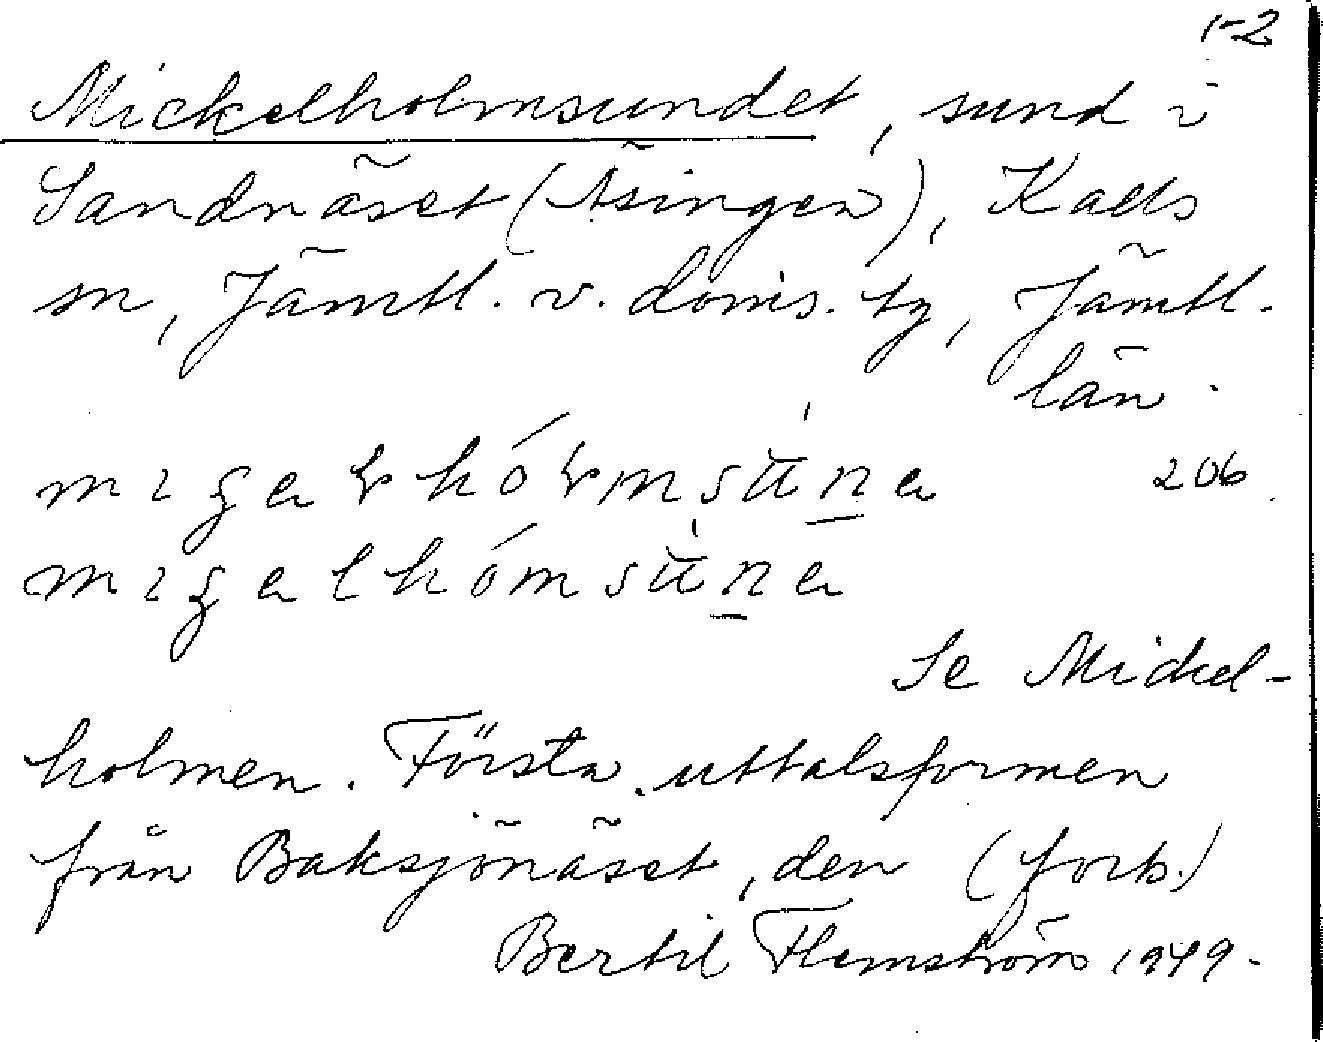 1-2
Mickelholmsundet, sund i
Sandnäset (Äsingen), Kalls
sn, Jämtl. v. doms. tg, Jämtl.
län.
206
Se Mickel-
holmen. Första uttalsformen
från Baksjönäset, den (forts.)
Bertil Flemström 1949.